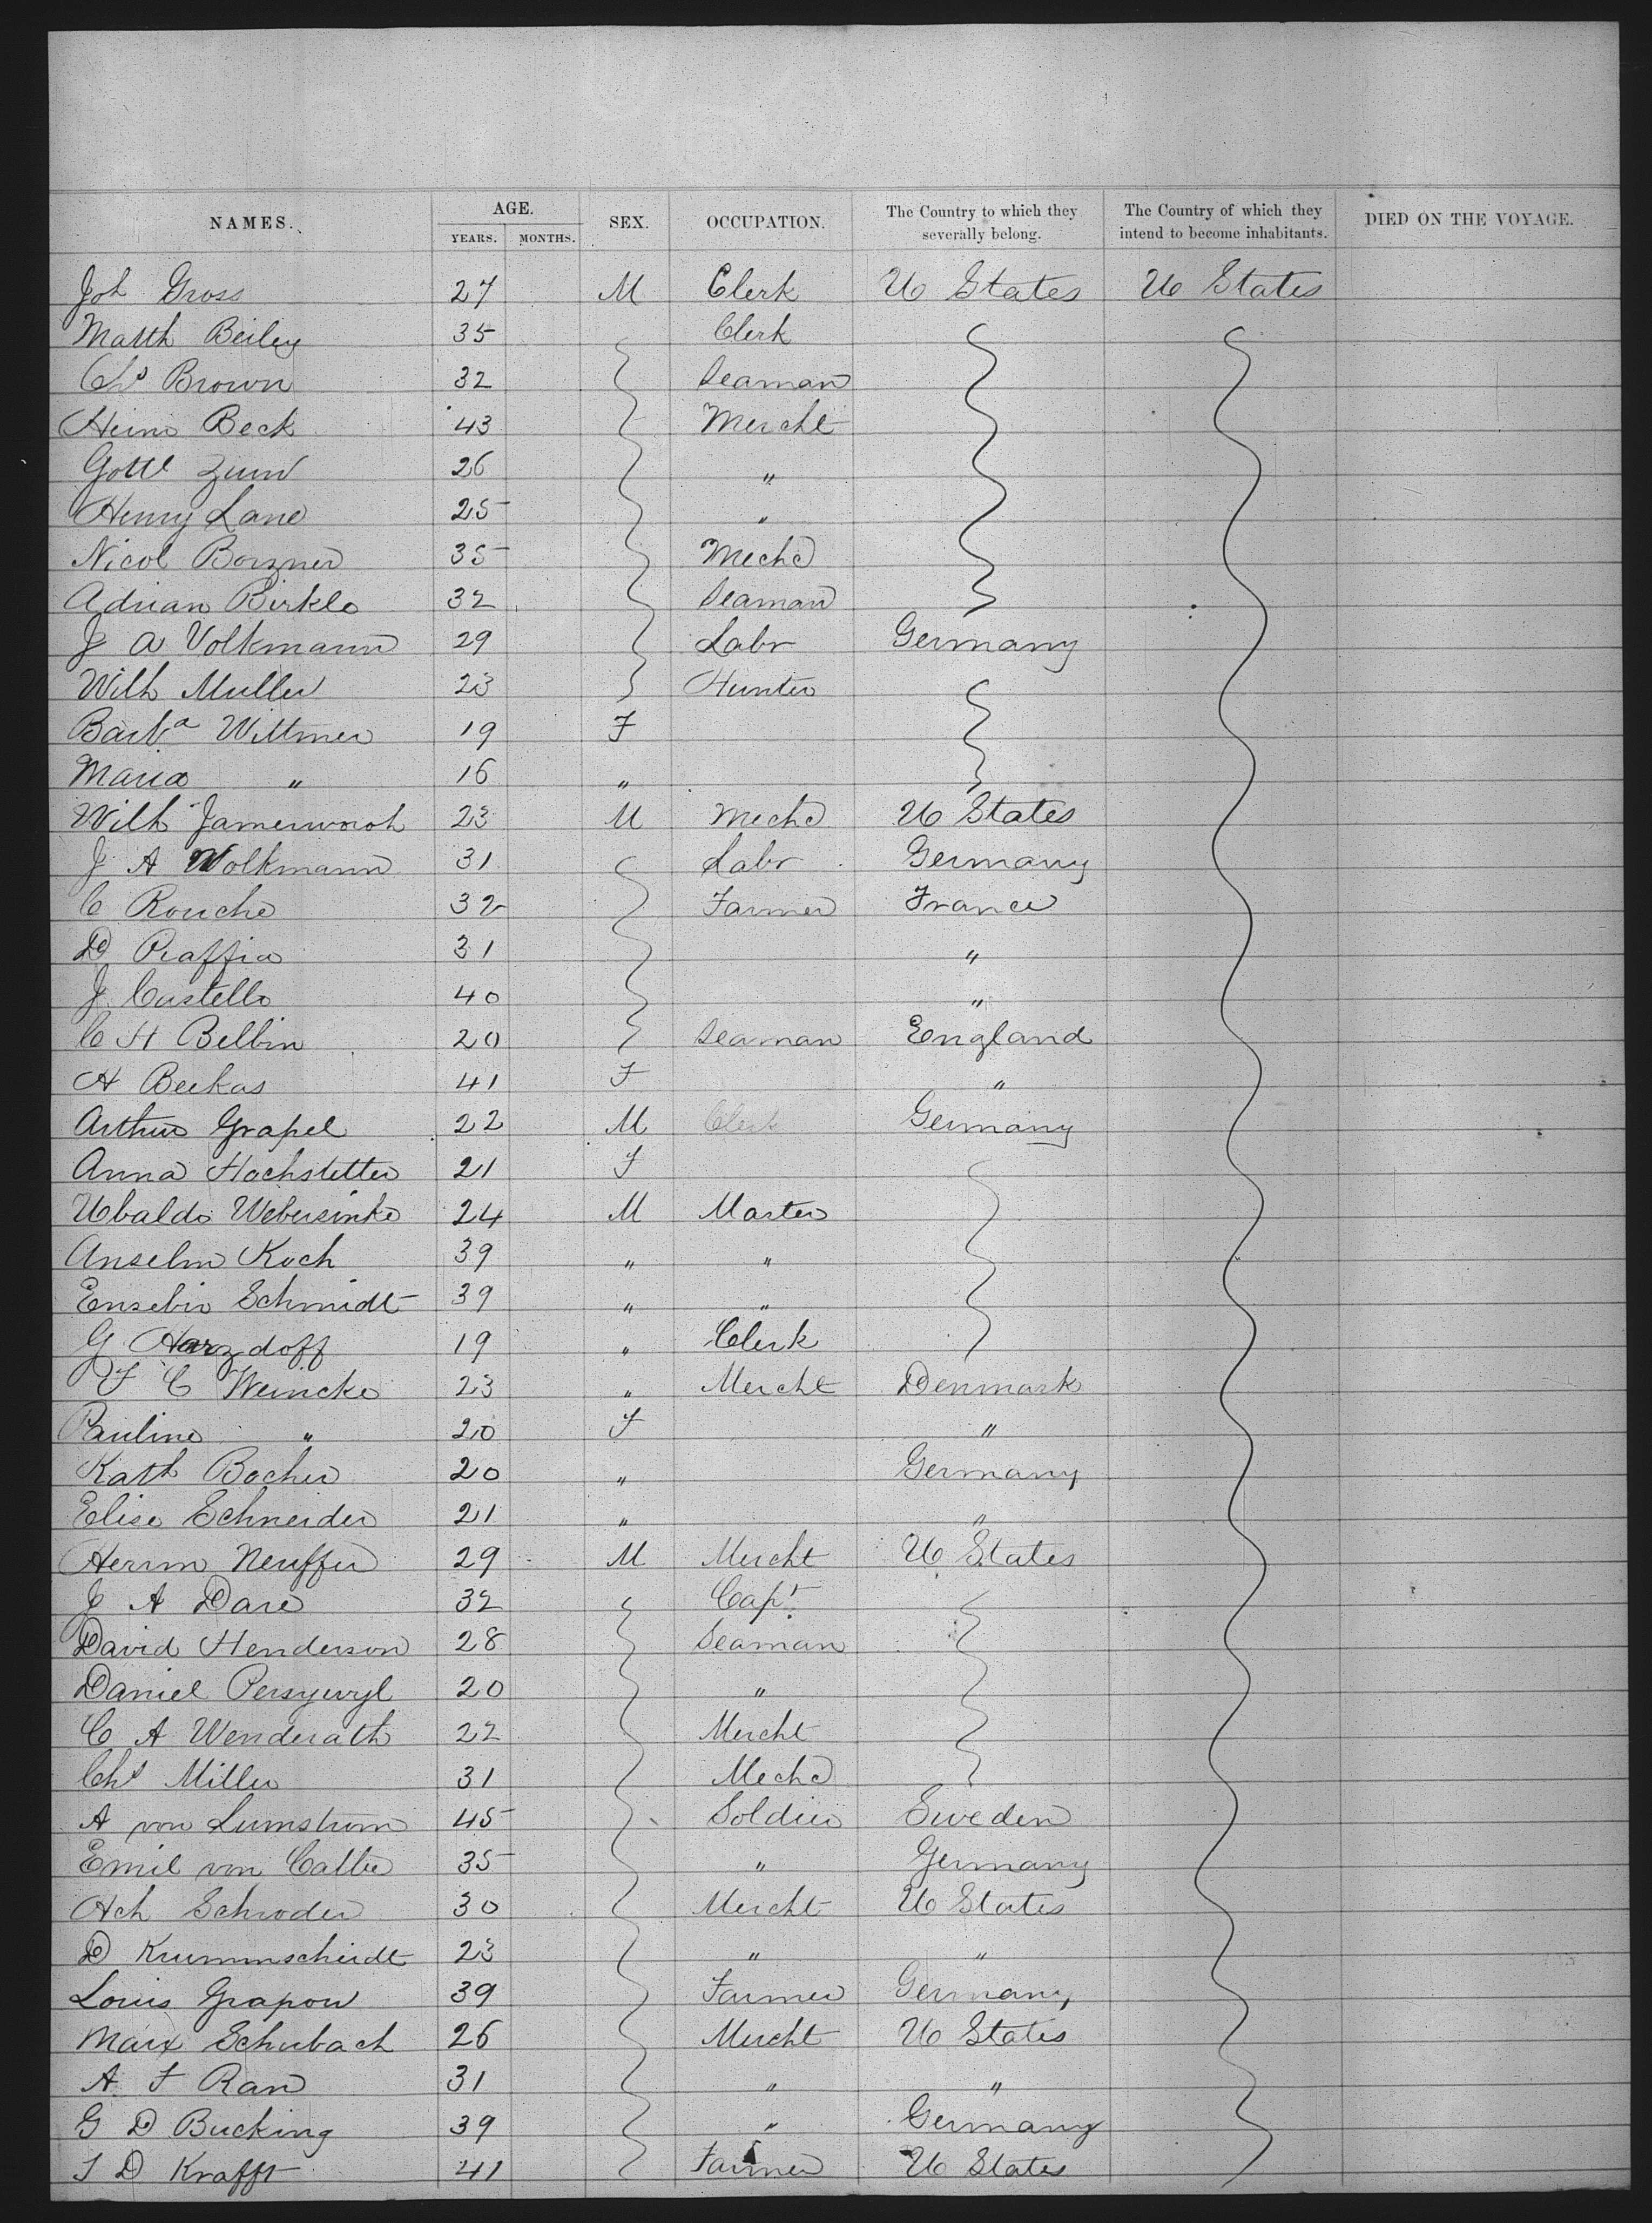 NAMES. AGE. SEX. OCCUPATION. The Country to which they severally belong. The Country of which they intend to become inhabitants. DIED ON THE VOYAGE.
YEARS. MONTHS.
Joh Gross 27 M Clerk U States U States
Matth Beiley 35 Clerk
Chs Brown 32 Seaman
Heinr Beck 43 Mercht
Gottl Zum 26 "
Henry Lane 25 "
Nicol Borzner 35 Mechc
Adrian Birkle 32 Seaman
J A Volkmann 29 Labr Germany
Wilh Muller 23 Hunter
Barba Wittmer 19 F
Maria " 16 "
Wilh 23 M Mechc U States
J A Wolkmann 31 Labr Germany
C Rouche 32 Farmer France
D 31 "
J. Custello 40 "
C H Belbin 20 Seaman Eengland
A Beekas 41 F "
Arthur Grapel 22 M Clerk Germany
Anna Hochstetter 21 F
Ubaldo Webersinke 24 M Master
Anselm Koch 39 " "
Eusebir Schmidt 39 " "
G Harzdoff 19 " Clerk
F C Weincke 23 " Mercht Denmark
Pauline " 20 F "
Kath Bocher 20 " Germany
Elise Schneider 21 " "
Herrm Neuffer 29 M Mercht U States
J A Dare 32 Capt.
David Henderson 28 Seaman
Daniel 20 "
C A Wenderath 22 Mercht
Chs Miller 31 Mechc
A von Lumstrom 45 Soldier Sweden
Emil von Callee 35 " Germany
Ach Schroder 30 Mercht U States
D Krummscheidt 23 " "
Louis Grapow 39 Farmer Germany
Marx Schubach 26 Mercht U States
A. F Ran 31 " "
G D Bucking 39 " Germany
J D Krafft 41 Farmer U States